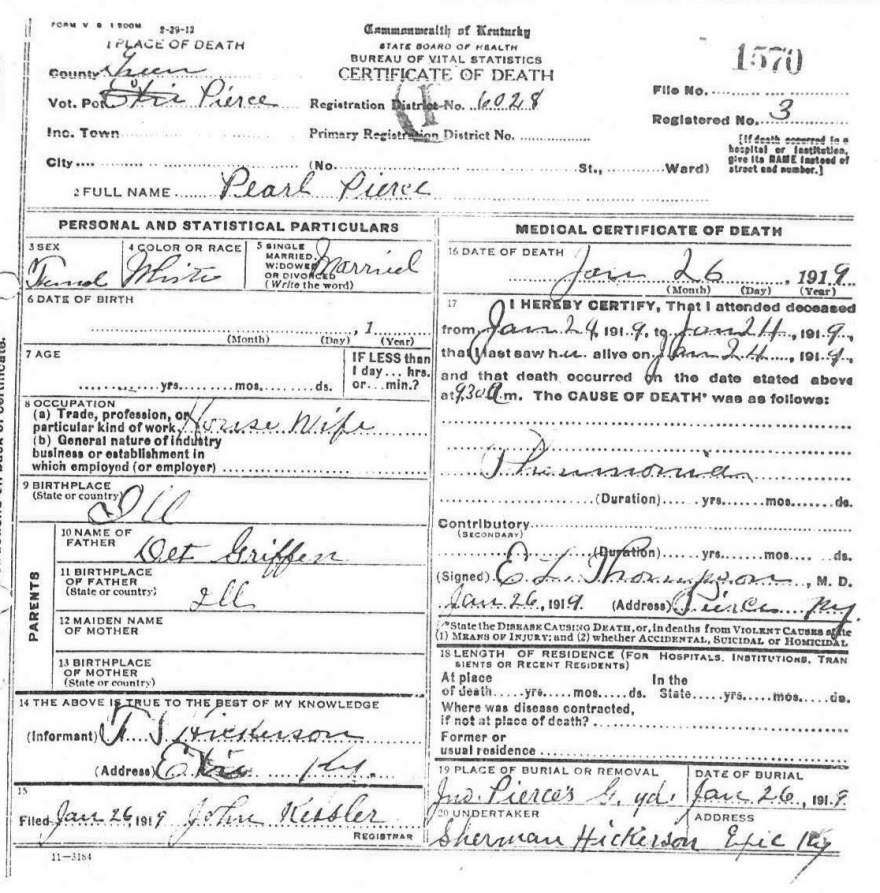 FORM V S 1 500M 2-29-12
Commonwealth of Kentucky
STATE BOARD OF HEALTH
BUREAU OF VITAL STATISTICS
CERTIFICATE OF DEATH
1570
1 PLACE OF DEATH
County Green
Vot. Pct. Pierce
Registration District No. 6028
File No.
Registered No. 3
Inc. Town
Primary Registration District No.
[If death occurred in a hospital or institution, give its NAME instead of street and number.]
City (No. St., Ward)
2 FULL NAME Pearl Pierce
PERSONAL AND STATISTICAL PARTICULARS
3 SEX
Femal
4 COLOR OR RACE
White
5 SINGLE
MARRIED,
WIDOWED
OR DIVORCED
(Write the word)
Married
6 DATE OF BIRTH
, 1
(Month) (Day) (Year)
7 AGE
yrs. mos. ds.
IF LESS than
1 day... hrs.
or... min.?
8 OCCUPATION
(a) Trade, profession, or
particular kind of work House Wife
(b) General nature of industry
business or establishment in
which employed (or employer)
9 BIRTHPLACE
(State or country)
Ill
PARENTS
10 NAME OF
FATHER
Griffen
11 BIRTHPLACE
OF FATHER
(State or country)
Ill
12 MAIDEN NAME
OF MOTHER
13 BIRTHPLACE
OF MOTHER
(State or country)
14 THE ABOVE IS TRUE TO THE BEST OF MY KNOWLEDGE
(Informant) Hickerson
(Address) Ky.
15
Filed Jan 26 1919 John Kessler
REGISTRAR
11—3184
MEDICAL CERTIFICATE OF DEATH
16 DATE OF DEATH
Jan 26, 1919
(Month) (Day) (Year)
17
I HEREBY CERTIFY, That I attended deceased
from Jan 24, 1919, to Jan 24, 1919,
that I last saw h alive on Jan 24, 1919,
and that death occurred on the date stated above
at 9.30 m. The CAUSE OF DEATH* was as follows:
Pneumonia
(Duration) yrs. mos. ds.
Contributory
(SECONDARY)
(Duration) yrs. mos. ds.
(Signed) E. L. Thompson, M. D.
Jan 26, 1919 (Address) Pierce Ky.
*State the DISEASE CAUSING DEATH, or, in deaths from VIOLENT CAUSES state
(1) MEANS OF INJURY; and (2) whether ACCIDENTAL, SUICIDAL or HOMICIDAL
18 LENGTH OF RESIDENCE (FOR HOSPITALS, INSTITUTIONS, TRAN
SIENTS OR RECENT RESIDENTS)
At place In the
of death yrs. mos. ds. State yrs. mos. ds.
Where was disease contracted,
if not at place of death?
Former or
usual residence
19 PLACE OF BURIAL OR REMOVAL
Jno. Pierce's G. yd.
DATE OF BURIAL
Jan 26, 1919
20 UNDERTAKER
Sherman Hickerson
ADDRESS
Epic Ky